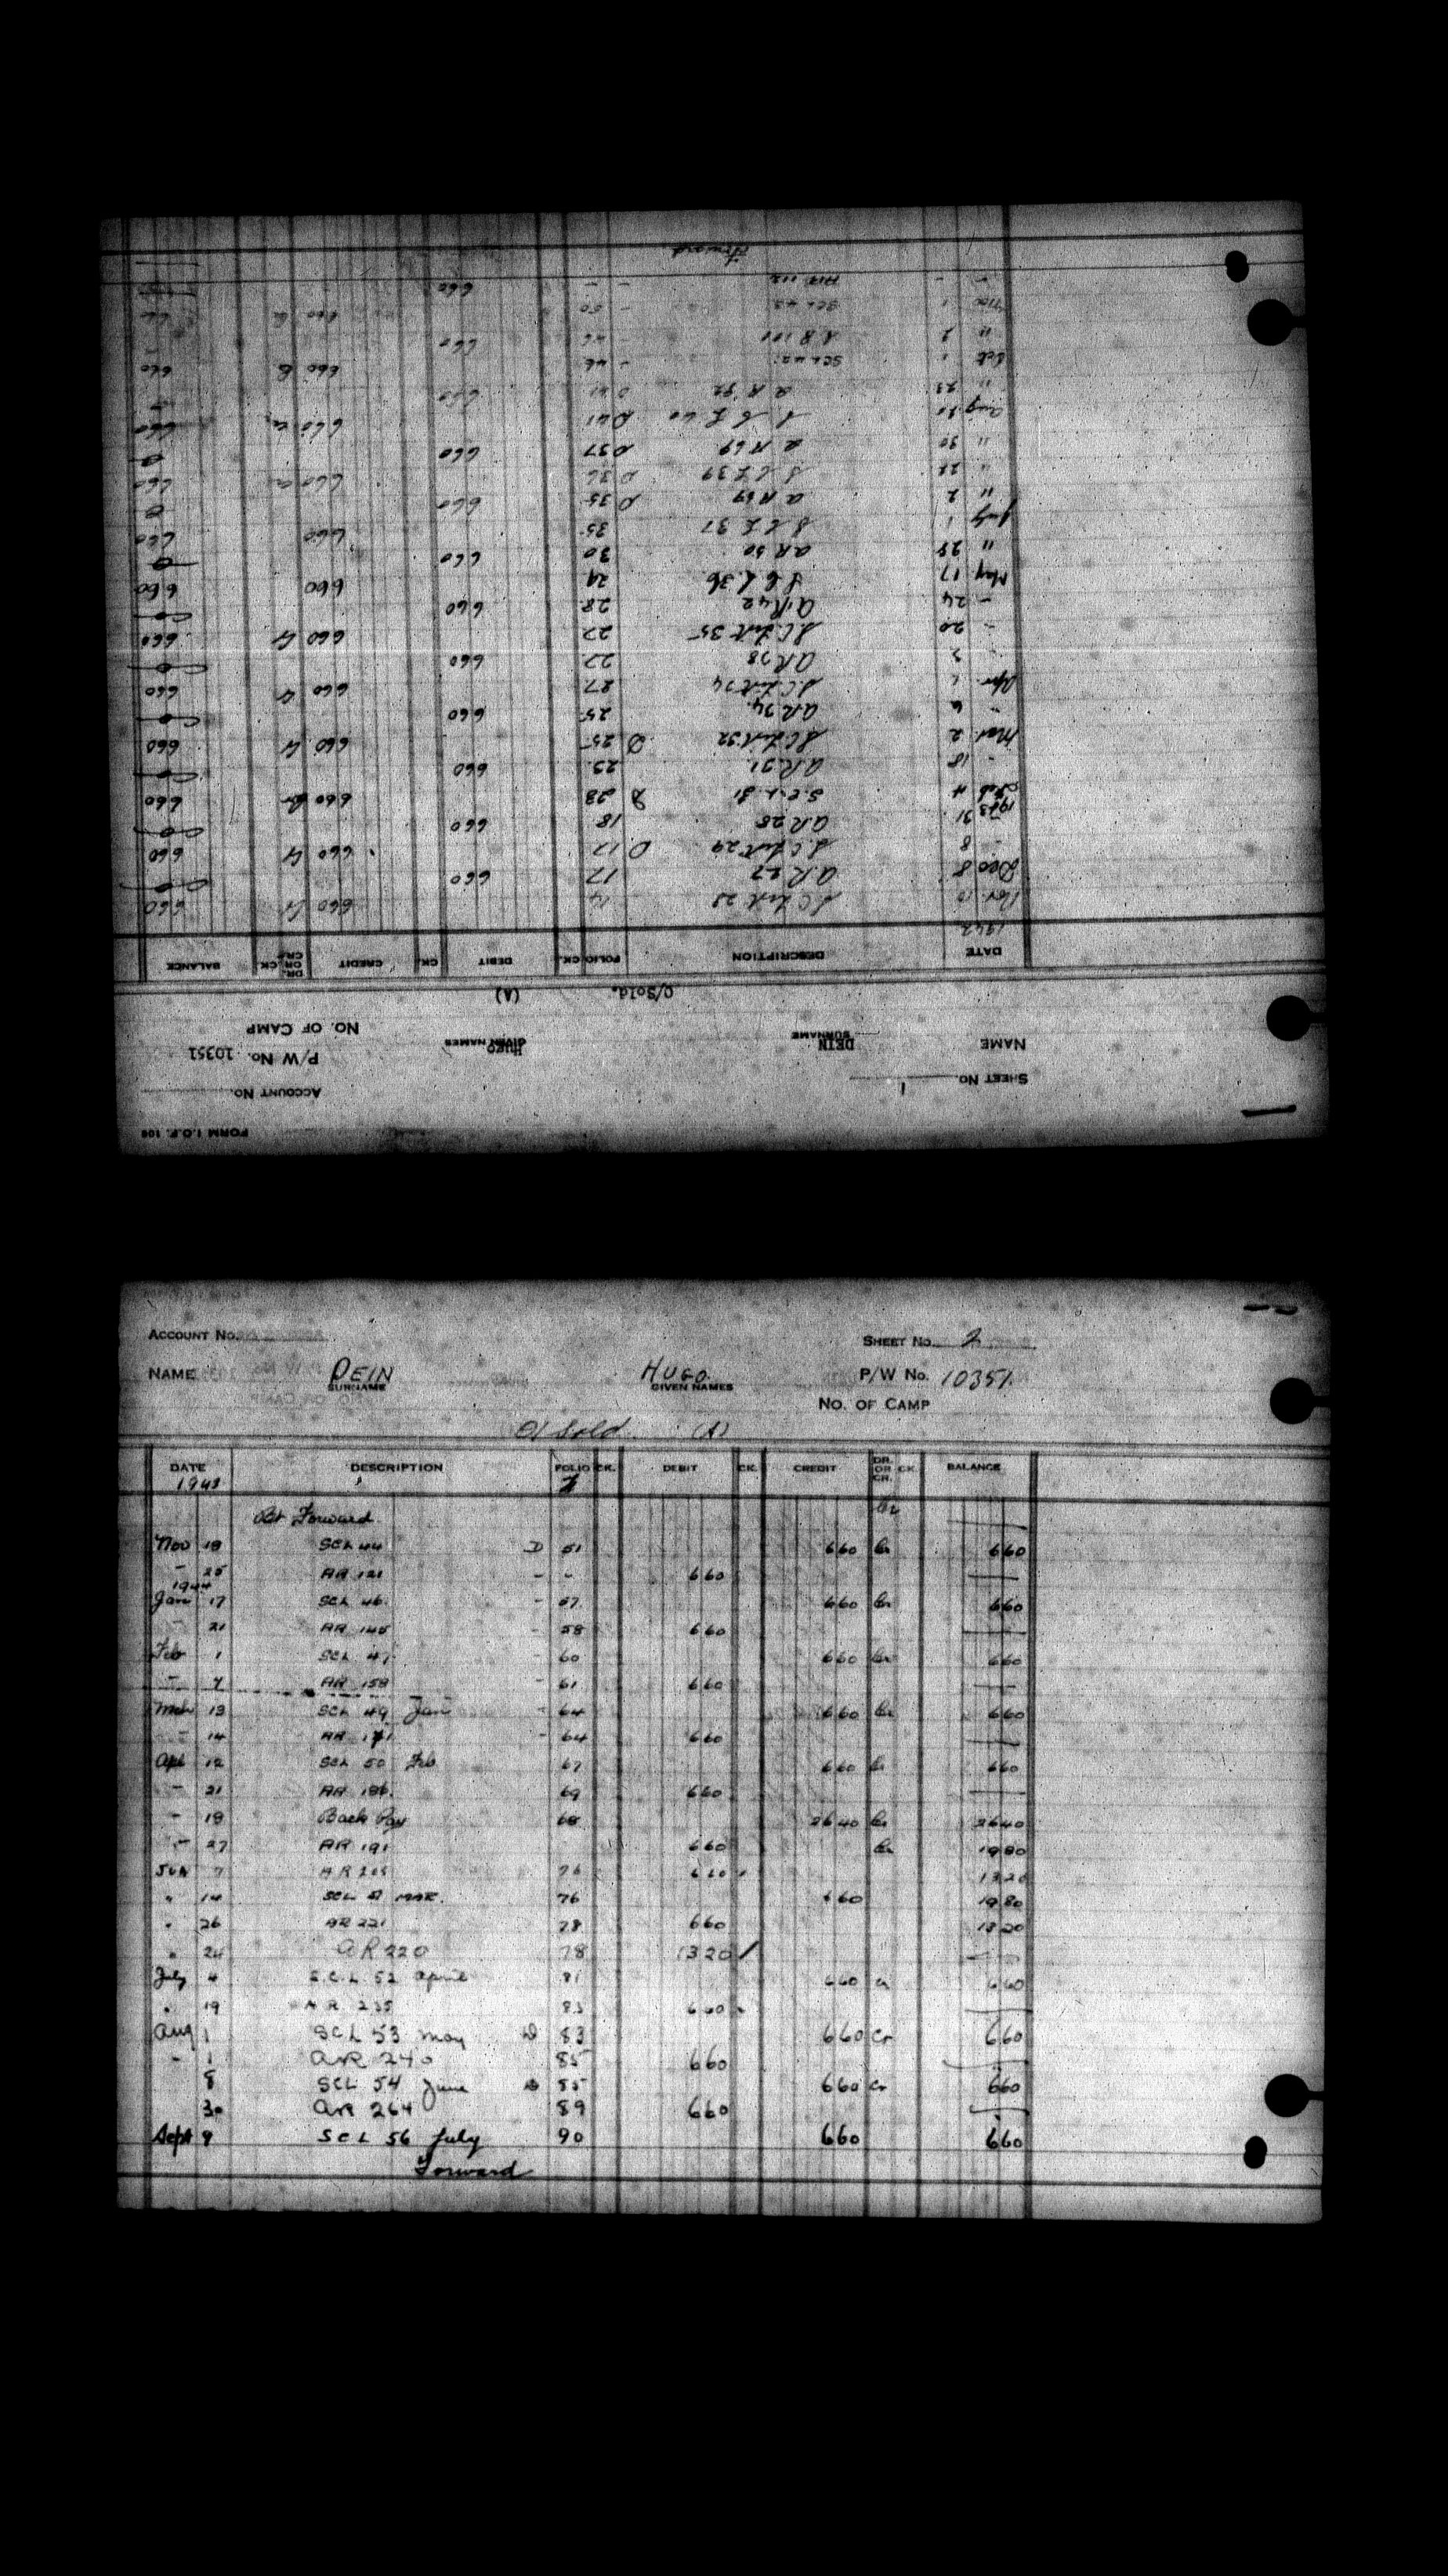 FORM I.O.F. 108
SHEET No. 1 ACCOUNT No.
NAME DEIN HUGO P/W No. 10351
SURNAME GIVEN NAMES NO. OF CAMP
O/Sold. (A)
DATE DESCRIPTION FOLIO CK. DEBIT CK. CREDIT DR. OR CR. CK. BALANCE
1942
Nov 10 S.C. List 28 14 660 Cr 660
Dec 8 A.R 27 17 660 0
8 S.C. List 29 D 17 660 Cr 660
31 A.R 28 18 660 0
1943
Feb 4 S.C.L. 31 D 23 660 Cr 660
18 A.R. 31 23 660 0
Mar 2 S.C. List 32 D 25 660 Cr 660
6 A.R. 34 25 660 0
Apr. 1 S.C. List 34 27 660 Cr 660
3 A.R 38 27 660 0
20 S.C. List 35 27 660 Cr 660
24 A.R 42 28 660 0
May 17 S.C.L. 36 29 660 660
" 28 A.R 50 30 660 0
July 1 S.C.L 37 35 660 660
" 2 A R 64 D 35 660 0
" 28 S.C.L 39 D 36 660 Cr 660
" 30 A R 69 D 37 660 0
Aug S C L 40 D 41 660 Cr 660
" 23 A R 82 D 41 660
Oct 1 SCL 42 - 46 660 Cr 660
" 2 A R 101 - 46 660
Nov 1 SCL 43 - 50 660 Cr 660
- - AR 112 - - 660
Forward
ACCOUNT No. SHEET No. 2
NAME DEIN HUGO. P/W No. 10351.
SURNAME GIVEN NAMES
NO. OF CAMP
O/Sold. (A)
DATE DESCRIPTION FOLIO CK. DEBIT CK. CREDIT DR. OR CR. CK. BALANCE
1943
Bt Forward Cr
Nov 18 SCL 44 D 51 660 Cr 660
- 25 AR 121 - - 660
1944
Jan 17 SCL 46. - 57 660 Cr 660
- 21 AR 145 - 58 660
Feb 1 SCL 47 - 60 660 Cr 660
- 4 AR 158 - 61 660
Mch 13 SCL 49 Jan - 64 660 Cr 660
- 14 AR 171 - 64 660
Apl 12 SCL 50 Feb 67 660 Cr 660
- 21 AR 186. 69 660
- 19 Back Pay 68 2640 Cr 2640
- 27 AR 191 660 Cr 1980
Jun 7 AR 205 76 660 1320
" 14 SCL 51 MAR. 76 660 1980
" 26 AR 221 78 660 1320
" 24 AR 220 78 1320 /
July 4 S.C.L 52 April 81 660 Cr 660
" 19 AR 235 83 660
Aug 1 SCL 53 May D 83 660 Cr 660
- 1 AR 240 85 660
8 SCL 54 June D 85 660 Cr 660
30 AR 264 89 660
Sept 9 SCL 56 July 90 660 660
Forward